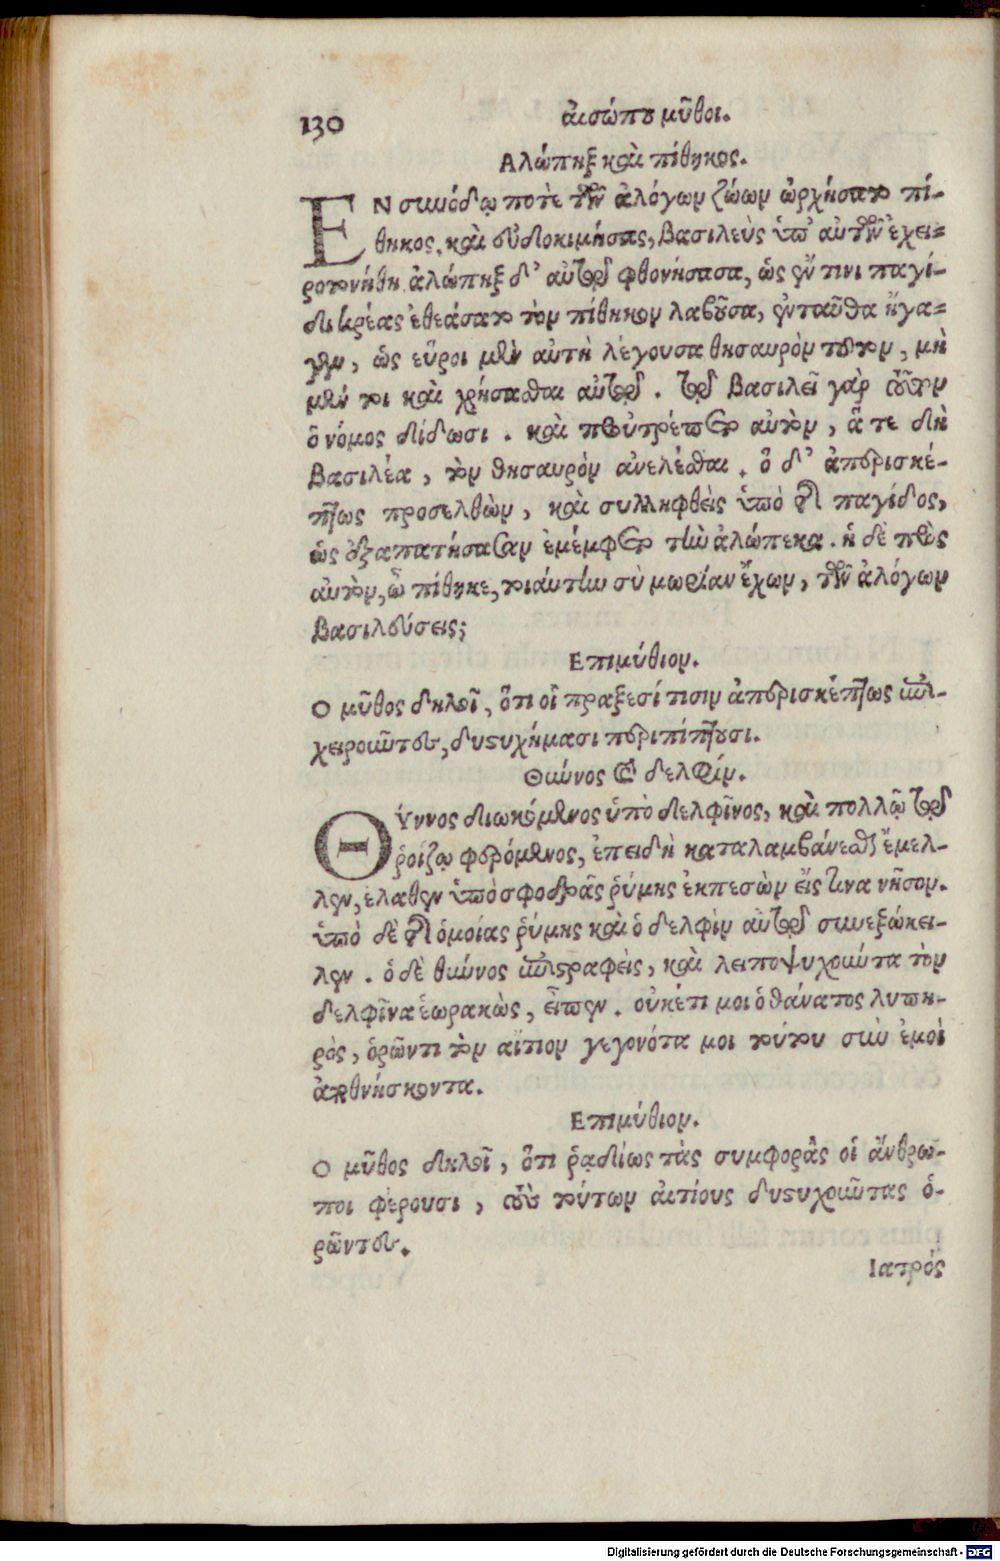 130 αἰσώπου μῦθοι.
Αλώπηξ καὶ πίθηκος.
ΕΝ συνόδῳ ποτὲ τῶν ἀλόγων ζώων ὠρχήσατο πί-
θηκος, καὶ εὐδοκιμήσας, βασιλεὺς ὑπ' αὐτῶν ἐχει-
ροτονήθη. ἀλώπηξ δ' αὐτῷ φθονήσασα, ὡς ἔν τινι παγί-
δι κρέας ἐθεάσατο τὸν πίθηκον λαβοῦσα, ἐνταῦθα ἤγα-
γεν, ὡς εὕροι μὲν αὐτὴ λέγουσα θησαυρὸν τοῦτον, μὴ
μέν τοι καὶ χρήσασθαι αὐτῷ. τῷ βασιλεῖ γὰρ τοῦτον
ὁ νόμος δίδωσι. καὶ προὐτρέπετο αὐτὸν, ἅ τε δὴ
βασιλέα, τὸν θησαυρὸν ἀνελέσθαι. ὁ δ' ἀπερισκέ-
πτως προσελθὼν, καὶ συλληφθεὶς ὑπὸ τῆς παγίδος,
ὡς ἐξαπατήσασαν ἐμέμφετο τὴν ἀλώπεκα. ἡ δὲ πρὸς
αὐτὸν, ὦ πίθηκε, τοιάυτην σὺ μωρίαν ἔχων, τῶν ἀλόγων
βασιλεύσεις;
Επιμύθιον.
Ο μῦθος δηλοῖ, ὅτι οἱ πραξεσί τισιν ἀπερισκέπτως ἐπι-
χειροῦντες, δυστυχήμασι περιπίπτουσι.
Θύννος καὶ δελφίν.
ΘΥννος διωκόμενος ὑπὸ δελφῖνος, καὶ πολλῷ τῷ
ῥοίζῳ φερόμενος, ἐπειδὴ καταλαμβάνεσθαι ἔμελ-
λεν, ἔλαθεν ὑπὸ σφοδρᾶς ῥύμης ἐκπεσὼν εἴς τινα νῆσον.
ὑπὸ δὲ τῆς ὁμοίας ῥύμης καὶ ὁ δελφὶν αὐτῷ συνεξώκει-
λεν. ὁ δὲ θύννος ἐπιστραφεὶς, καὶ λειποψυχοῦντα τὸν
δελφῖνα ἑωρακὼς, εἶπεν. οὐκέτι μοι ὁ θάνατος λυπη-
ρὸς, ὁρῶντι τὸν αἴτιον γεγονότα μοι τούτου σὺν ἐμοὶ
ἀποθνήσκοντα.
Επιμύθιον.
Ο μῦθος δηλοῖ, ὅτι ῥᾳδίως τὰς συμφορὰς οἱ ἄνθρω-
ποι φέρουσι, τοὺς τούτων αἰτίους δυστυχοῦντας ὁ-
ρῶντες.
Ιατρός
Digitalisierung gefördert durch die Deutsche Forschungsgemeinschaft - DFG